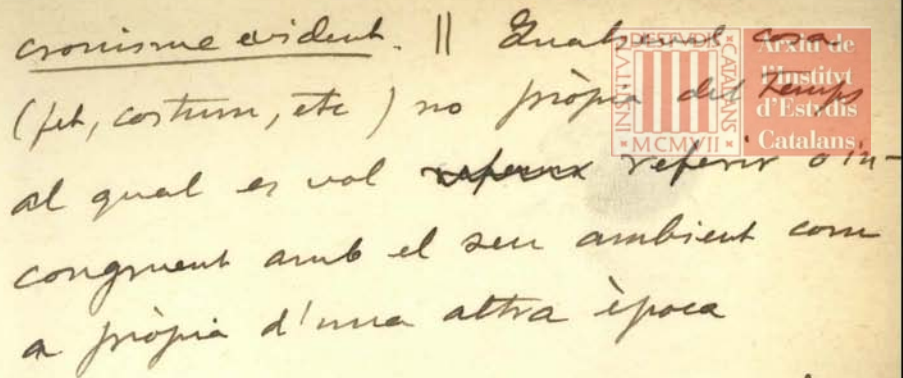 cronisme evident. || Qualsevol cosa
(fet, costum, etc) no pròpia del temps
al qual es vol referir o in-
congruent amb el seu ambient com
a pròpia d'una altra època
INSTITVT D'ESTVDIS CATALANS
MCMVII
Arxiu de
l'Institvt
d'Estvdis
Catalans